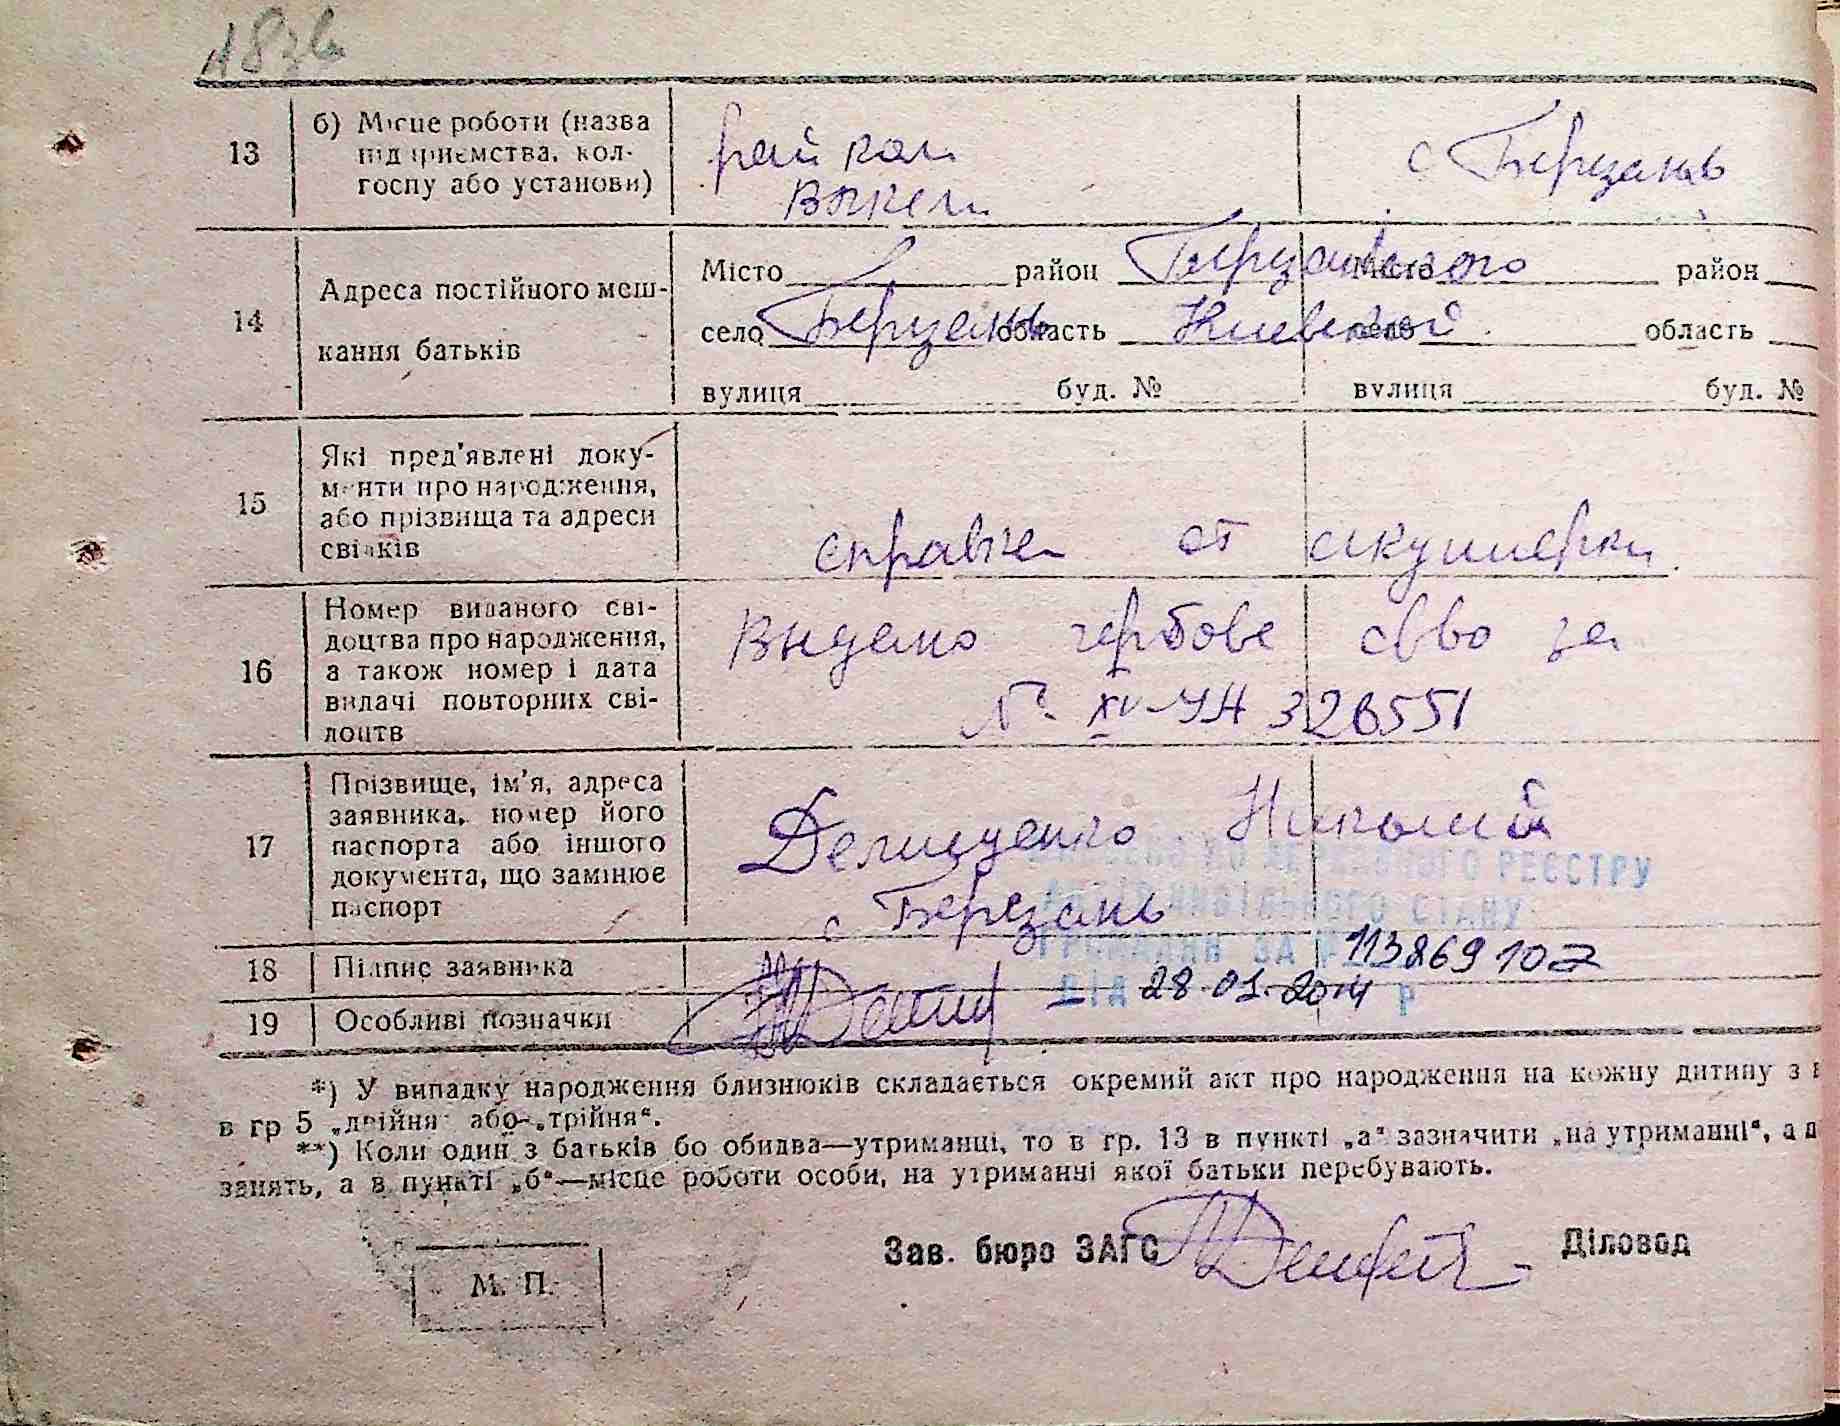 18зв
13
б) Місце роботи (назва
підприємства, кол-
госпу або установи)
рай ком
с Березань
14
Адреса постійного меш-
кання батьків
Місто район Березанського Місто район
село Березань область Киевской село область
вулиця буд. № вулиця буд. №
15
Які пред'явлені доку-
менти про народження,
або прізвища та адреси
свідків
справка от акушерки
16
Номер виданого сві-
доцтва про народження,
а також номер і дата
видачі повторних сві-
доцтв
Видано гербове св-во за
№ XI-УН 326551
17
Прізвище, ім'я, адреса
заявника, номер його
паспорта або іншого
документа, що замінює
паспорт
Николай
с Березань
ДО ДЕРЖАВНОГО РЕЄСТРУ
АКТІВ ЦИВІЛЬНОГО СТАНУ
ГРОМАДЯН ЗА № 11386910
ВІД 28.01.2014 р
18
Підпис заявника
19
Особливі позначки
*) У випадку народження близнюків складається окремий акт про народження на кожну дитину з
в гр 5 „двійня" або „трійня".
**) Коли один з батьків бо обидва—утриманці, то в гр. 13 в пункті „а" зазначити „на утриманні", а
занять, а в пункті „б"—місце роботи особи, на утриманні якої батьки перебувають.
М. П.
Зав. бюро ЗАГС
Діловод